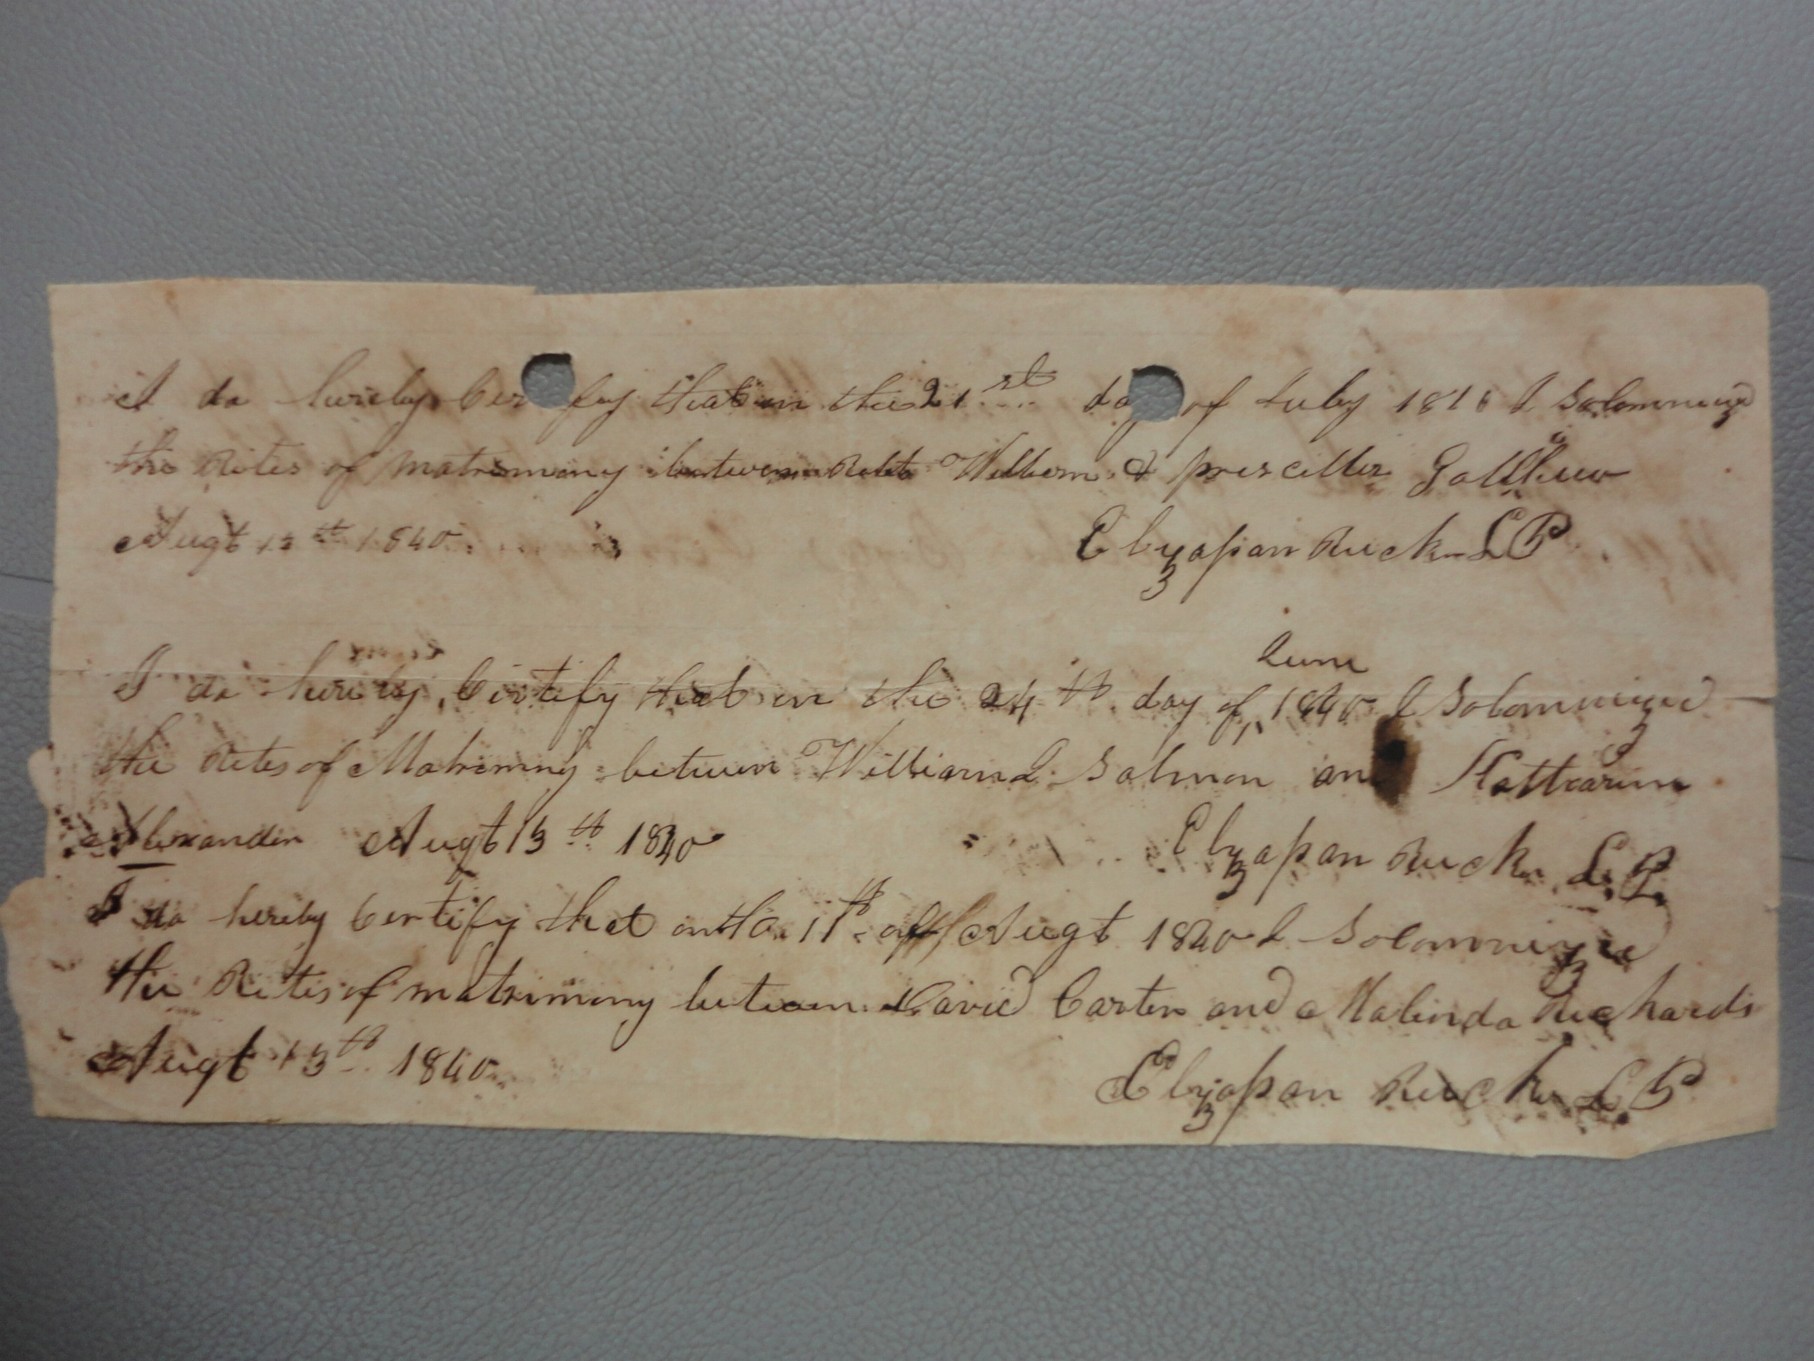 I do hereby Cer fy that on the 21st day of July 18 I Solomnized
the Rites of matrimony between Robt Wilborn & prisciller
Augt 13th 1840. Elyzaphan Rucker L P
I do hereby Certify that on the 24th day of June 1840 I Solomnized
the Rites of Matrimony between William L Salmon and Kattearine
Alexander Augt 13th 1840 Elyzaphan Rucker L. P.
I do hereby Certify that on the 11th of Augt 1840 I Solomnized
the Rites of matrimony between David Carter and Malinda Richards
Augt 13th 1840. Elyzaphan Rucker L. P